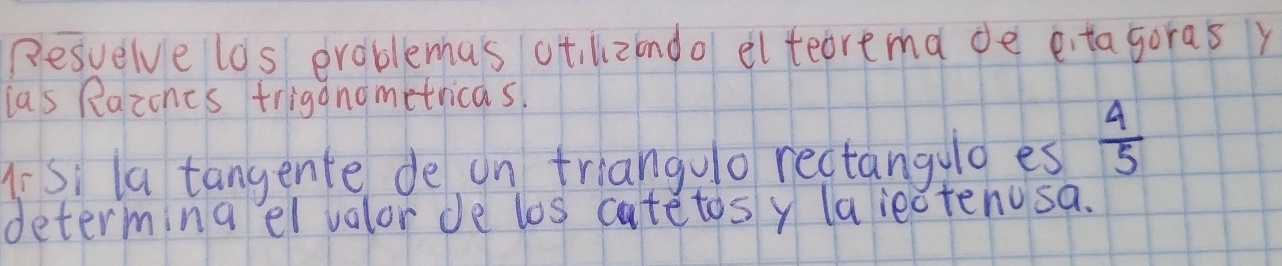 Resuelve los problemas utilizando el teorema de pitagoras y
las Razones trigonometricas.
1- Si la tangente de un triangulo rectangulo es 4/5
determina el valor de los catetos y la ipotenusa.